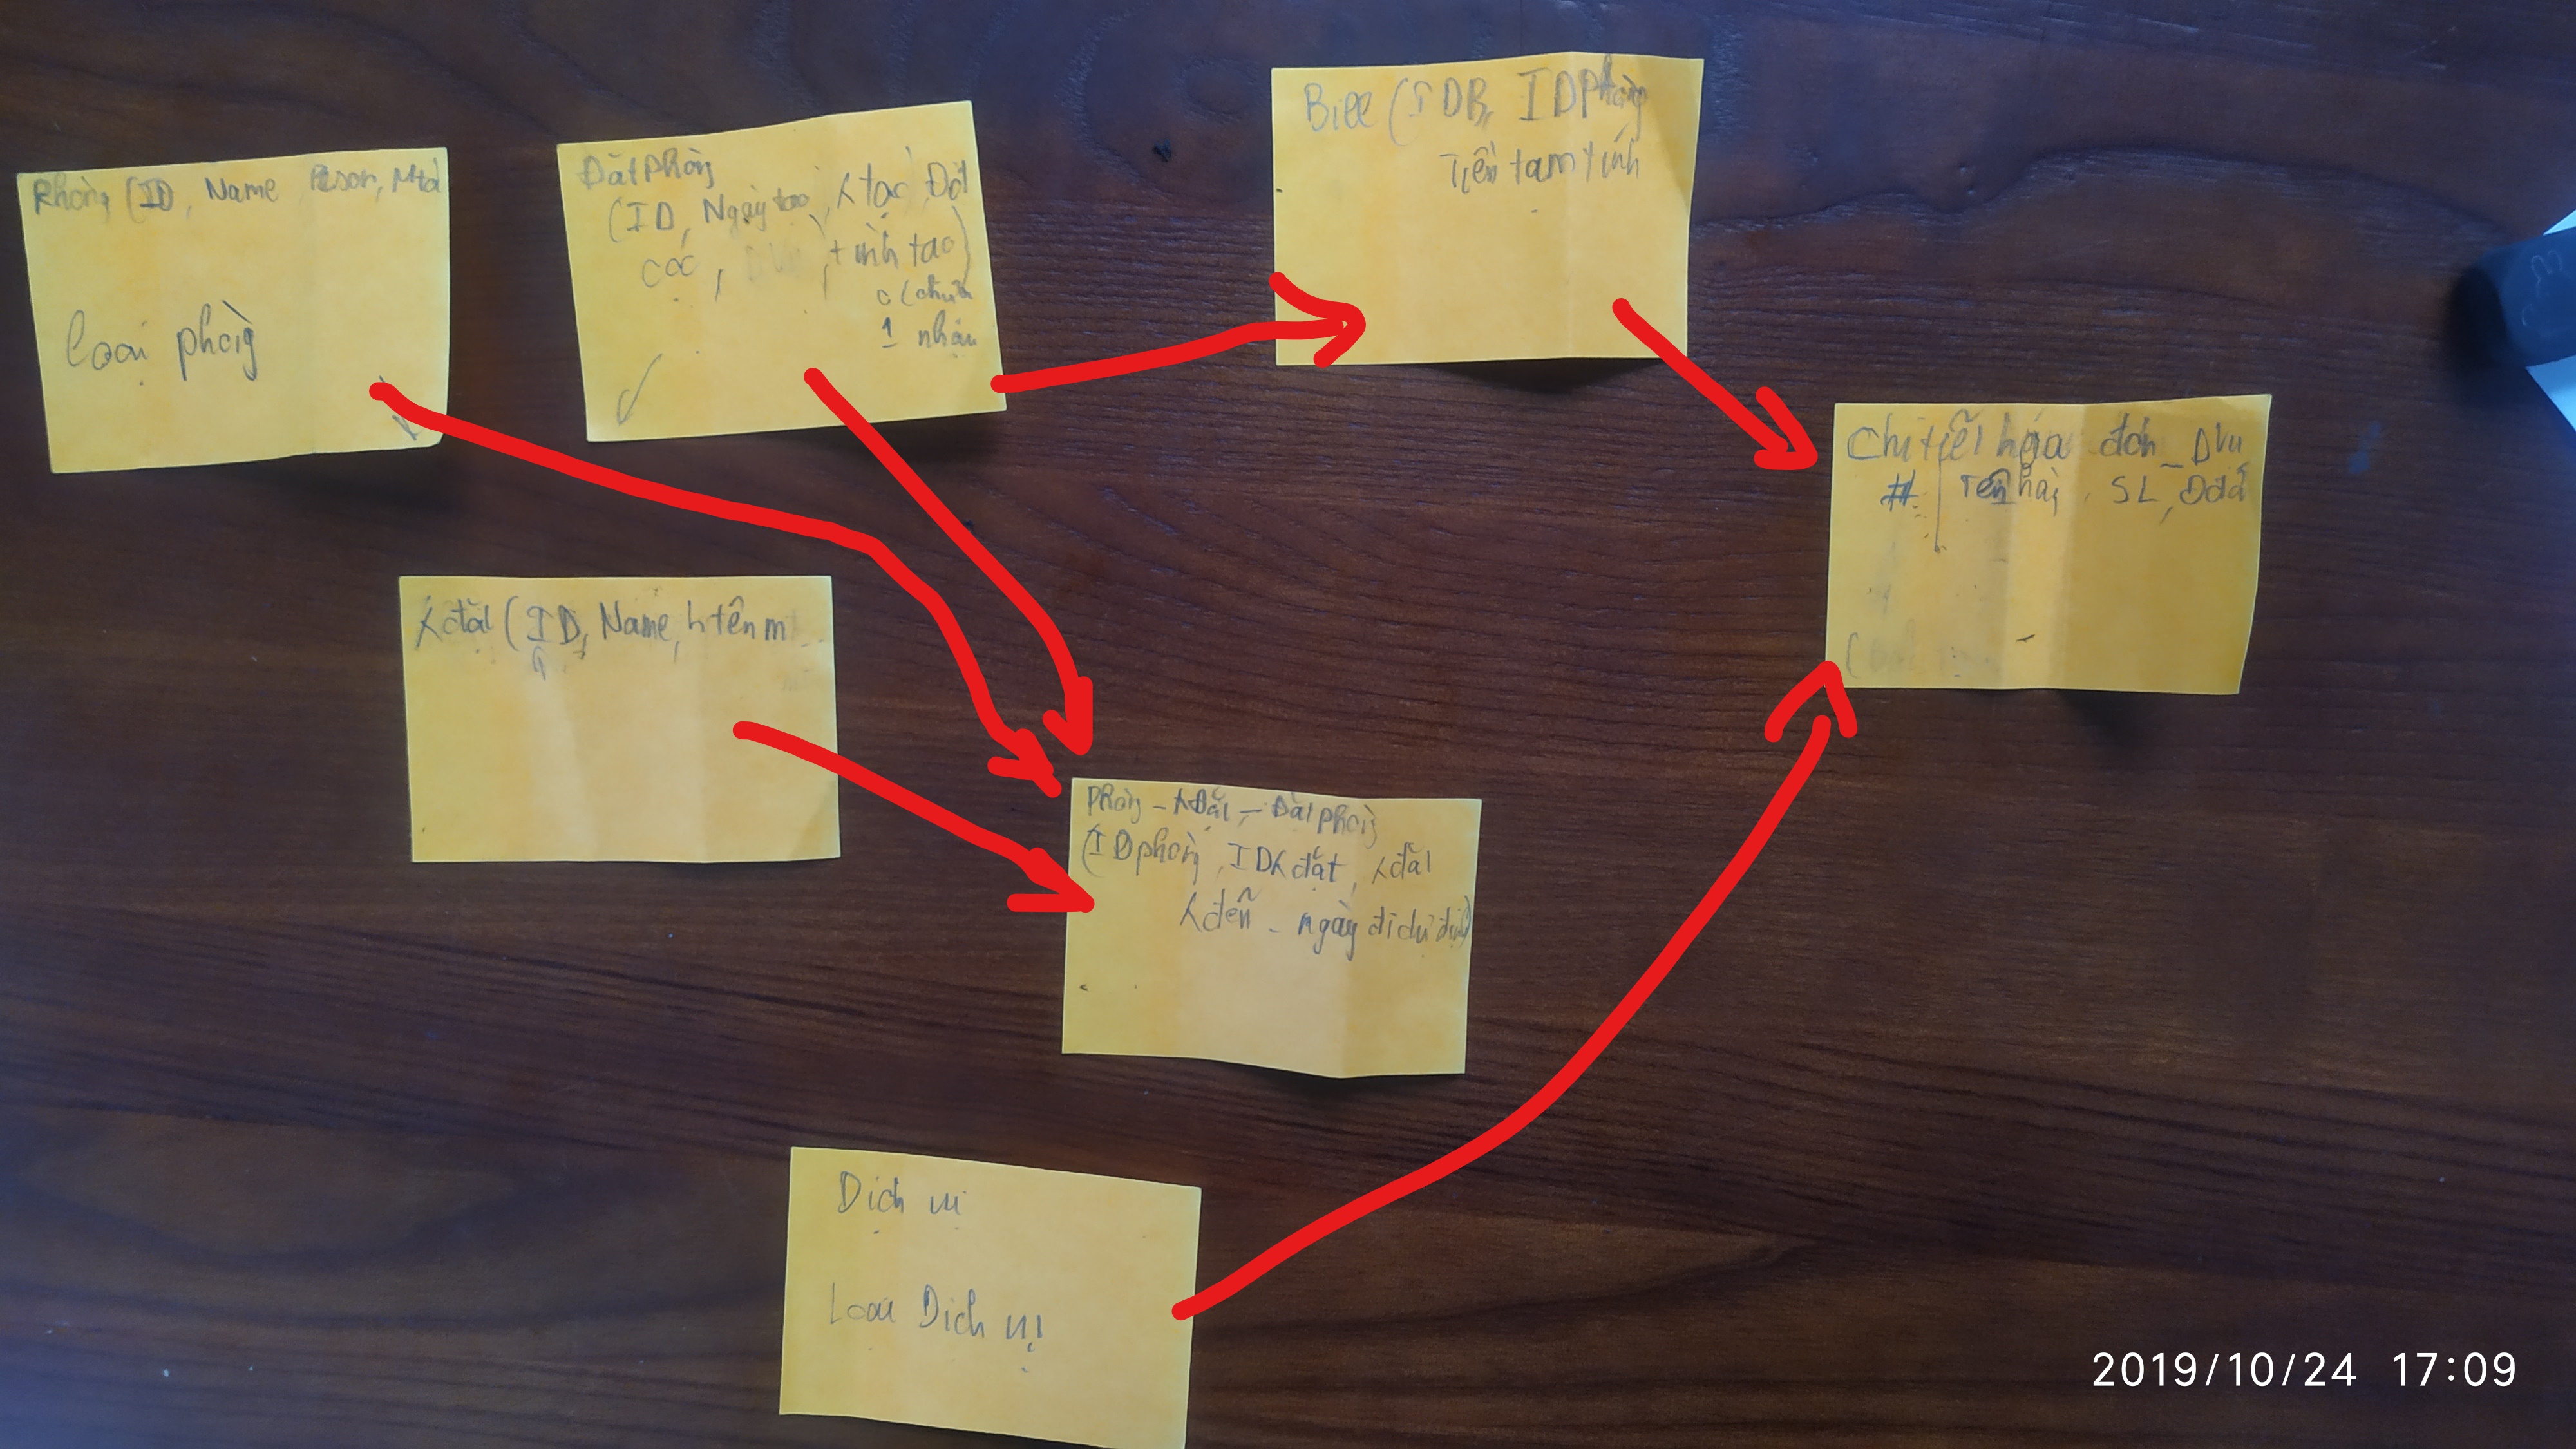 Phòng (ID, Name, Peson, Mtả
loại phòng
Đặt phòng
(ID, Ngày tạo, tạo, Đặt
cọc, tình tạo)
0 (chưa
1 nhận
Bill (IDB, IDPhòng
Tiền tạm tính
Chi tiết hóa đơn _ DVụ
# Tên hàg, SL, Đơn giá
đặt (ID, Name, h tên m
Phòng - Đặt - Đặt phòng
(ID phòng, ID đặt, đặt
đến - ngày đi dự định)
Dịch vụ
Loại Dịch vụ
2019/10/24 17:09